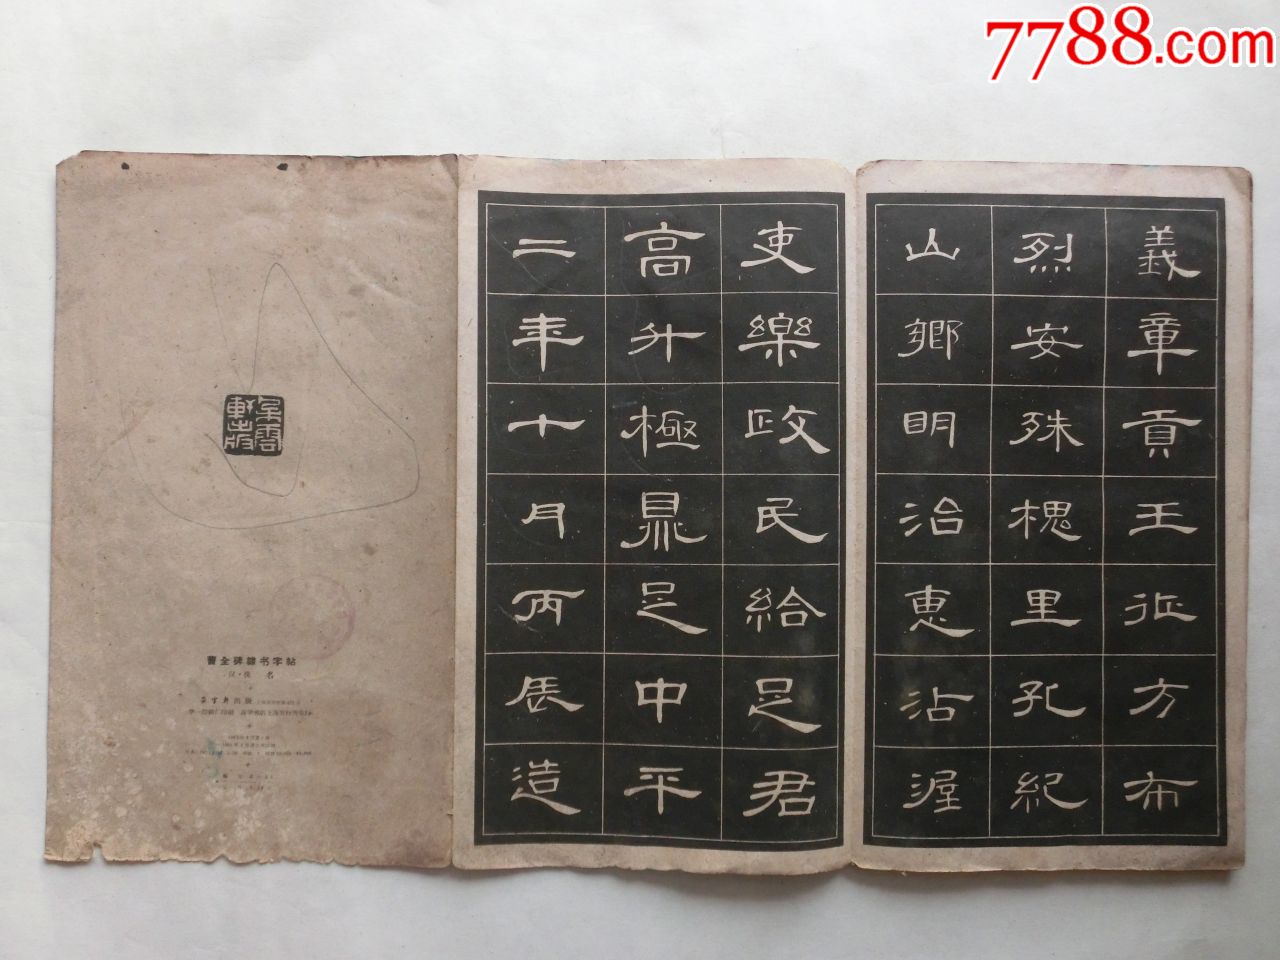 7788.com
義章貢王征方布
烈安殊槐里孔紀
山鄉明治惠沾渥
吏樂政民給足君
高升極鼎足中平
二年十月丙辰造
朵雲軒出版
曹全碑隸书字帖
汉·佚名
朵云轩出版